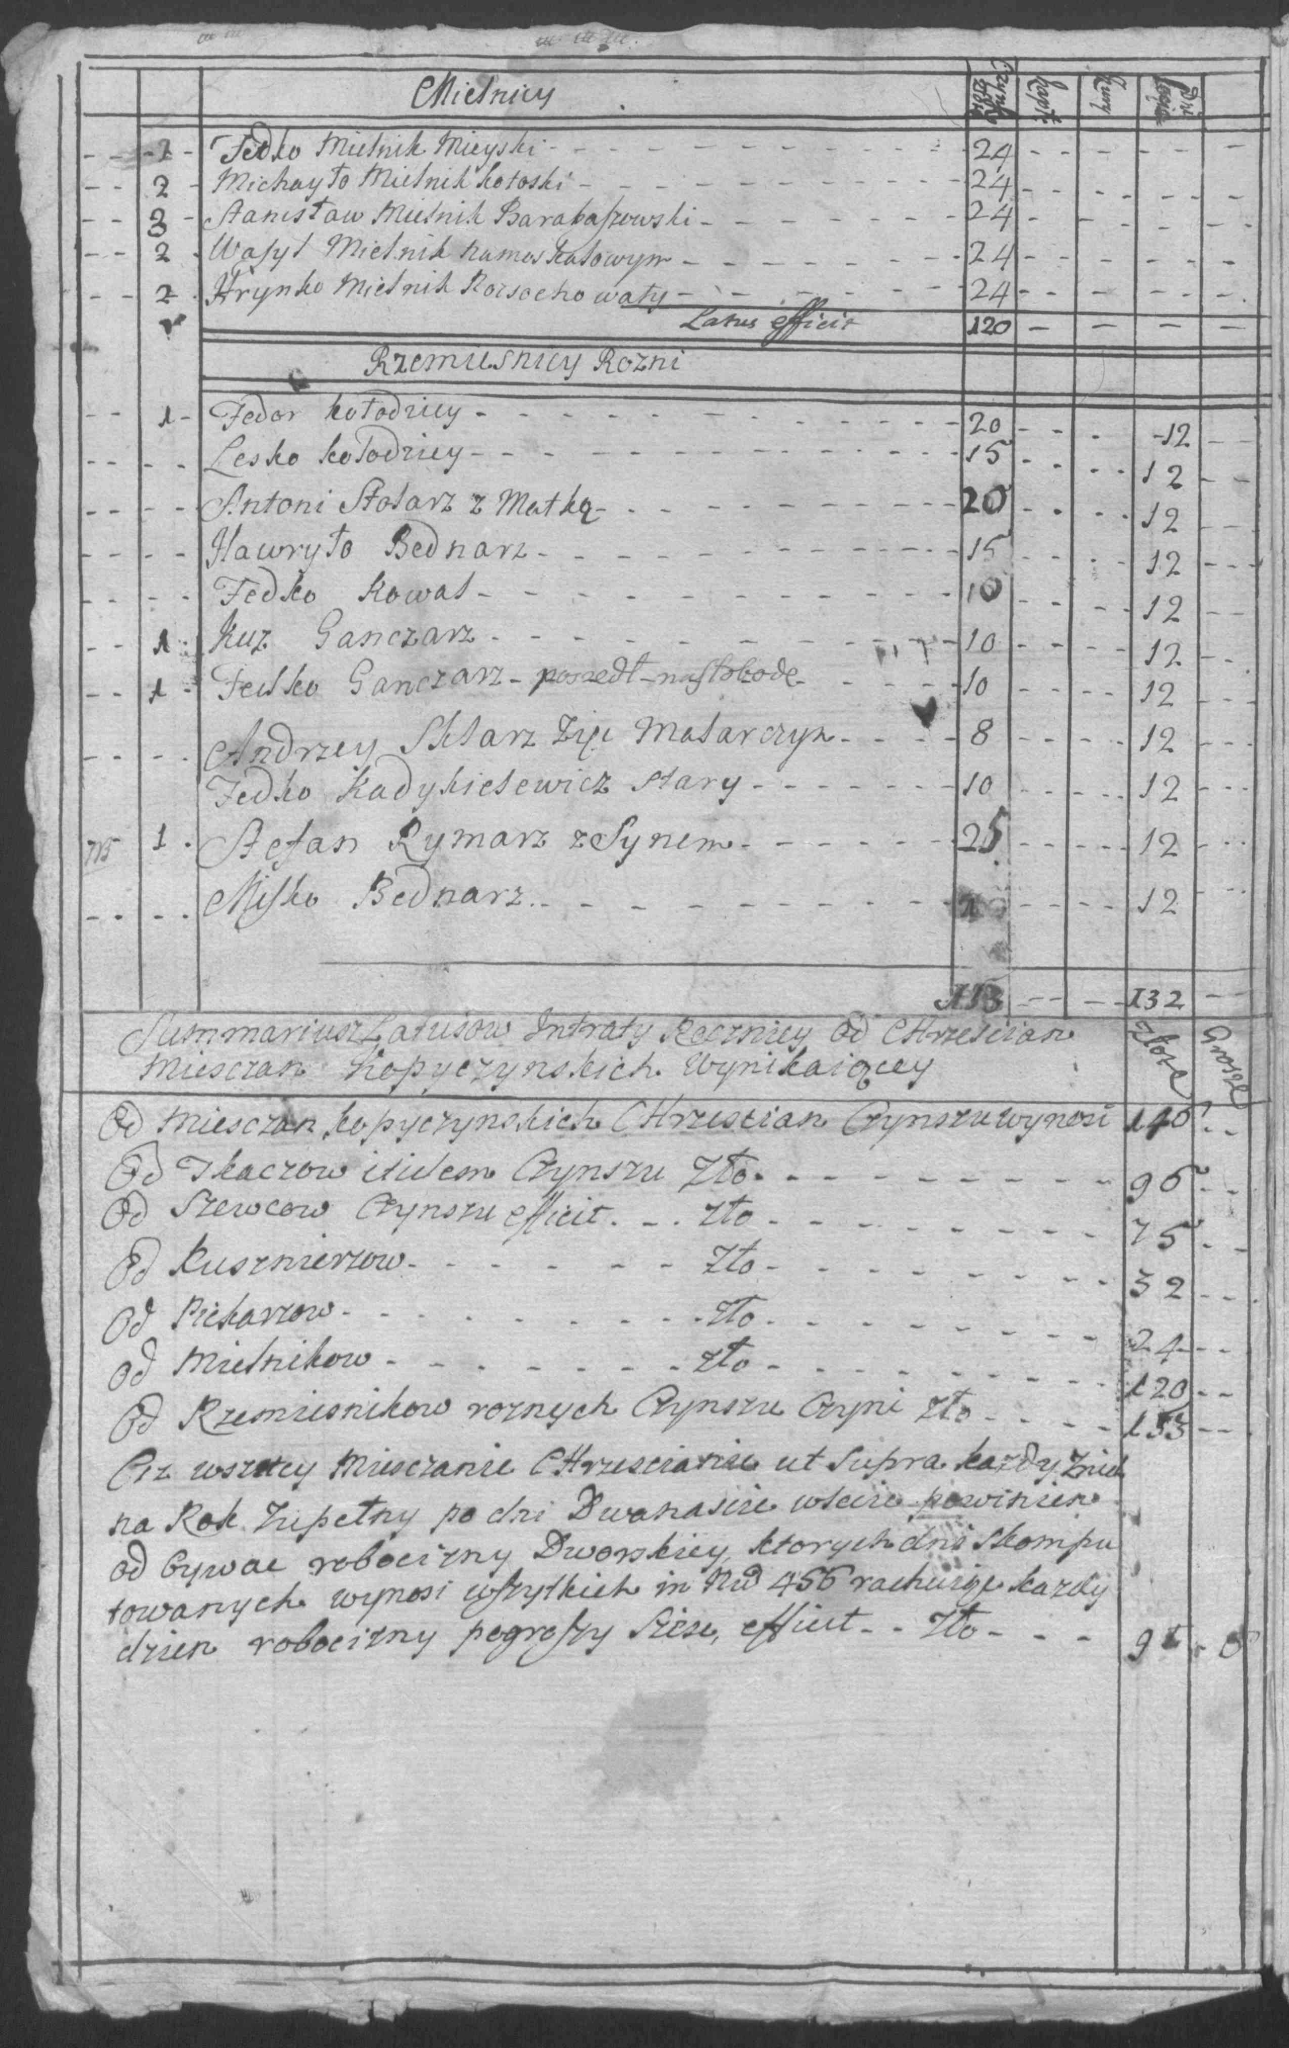 Mielnicy Czynsz Złote Kapł: Kury Dni
- - 2 Fedko Mielnik Mieyski - - - 24 - - - -
- - 2 Michayło Mielnik kotoski - - - 24 - - - -
- - 3 Stanisław Mielnik Barabaszowski - - - 24 - - - -
- - 2 Wasyl Mielnik - - - 24 - - - -
- - 2 Hrynko Mielnik Rozsochowaty - - - 24 - - - -
Latus efficit 120 - - - -
Rzemiesnicy Rozni
- - 1 Fedor kołodziey - - - 20 - - 12 - -
- - - - Lesko kołodziey - - - 15 - - 12 - -
- - - - Antoni Stolarz z Matką - - - 20 - - 12 - -
- - - - Hawryło Bednarz - - - 15 - - 12 - -
- - - - Fedko Kowal - - - 10 - - 12 - -
- - 1 Kuz Ganczarz - - - 10 - - 12 - -
- - 1 Fedko Ganczarz - poszedł na słobodę - - - 10 - - 12 - -
- - - - Andrzey Sklarz Zięc Malarczyn - - - 8 - - 12 - -
- - - - Fedko Kadykielewicz stary - - - 10 - - 12 - -
1 Stefan Rymarz z Synem - - - 25 - - 12 - -
- - - - Misko Bednarz - - - 12 - -
153 - - 132 - -
Summariusz Latusow Intraty Roczniey Od CHrzescian Złote Grosze
Miesczan Kopyczynskich Wynikaiącey
Od Miesczan Kopyczynskich CHrzescian Czynszu wynosi 140 - -
Od Tkaczow itidem Czynszu Zło - - - 96 - -
Od Szewcow Czynszu efficit - - - Zło - - - 75 - -
Od Kusznierzow - - - Zło - - - 32 - -
Od Piekarzow - - - Zło - - - 24 - -
Od Mielnikow - - - Zło - - - 120 - -
Od Rzemiesnikow roznych Czynszu Czyni Zło - - - 153 - -
Ciz wszytcy Miesczanie CHrzescianie ut Supra każdy Znich
na Rok Zupełny po dni Dwanascie wlecie powinien
odbywac robocizny Dworskiey, ktorych dni Skompu
towanych wynosi wszytkich in Nro 456 rachuiąc każdy
dzien robocizny pogroszy Szesc, efficit - - Zło - - - 91 - 6